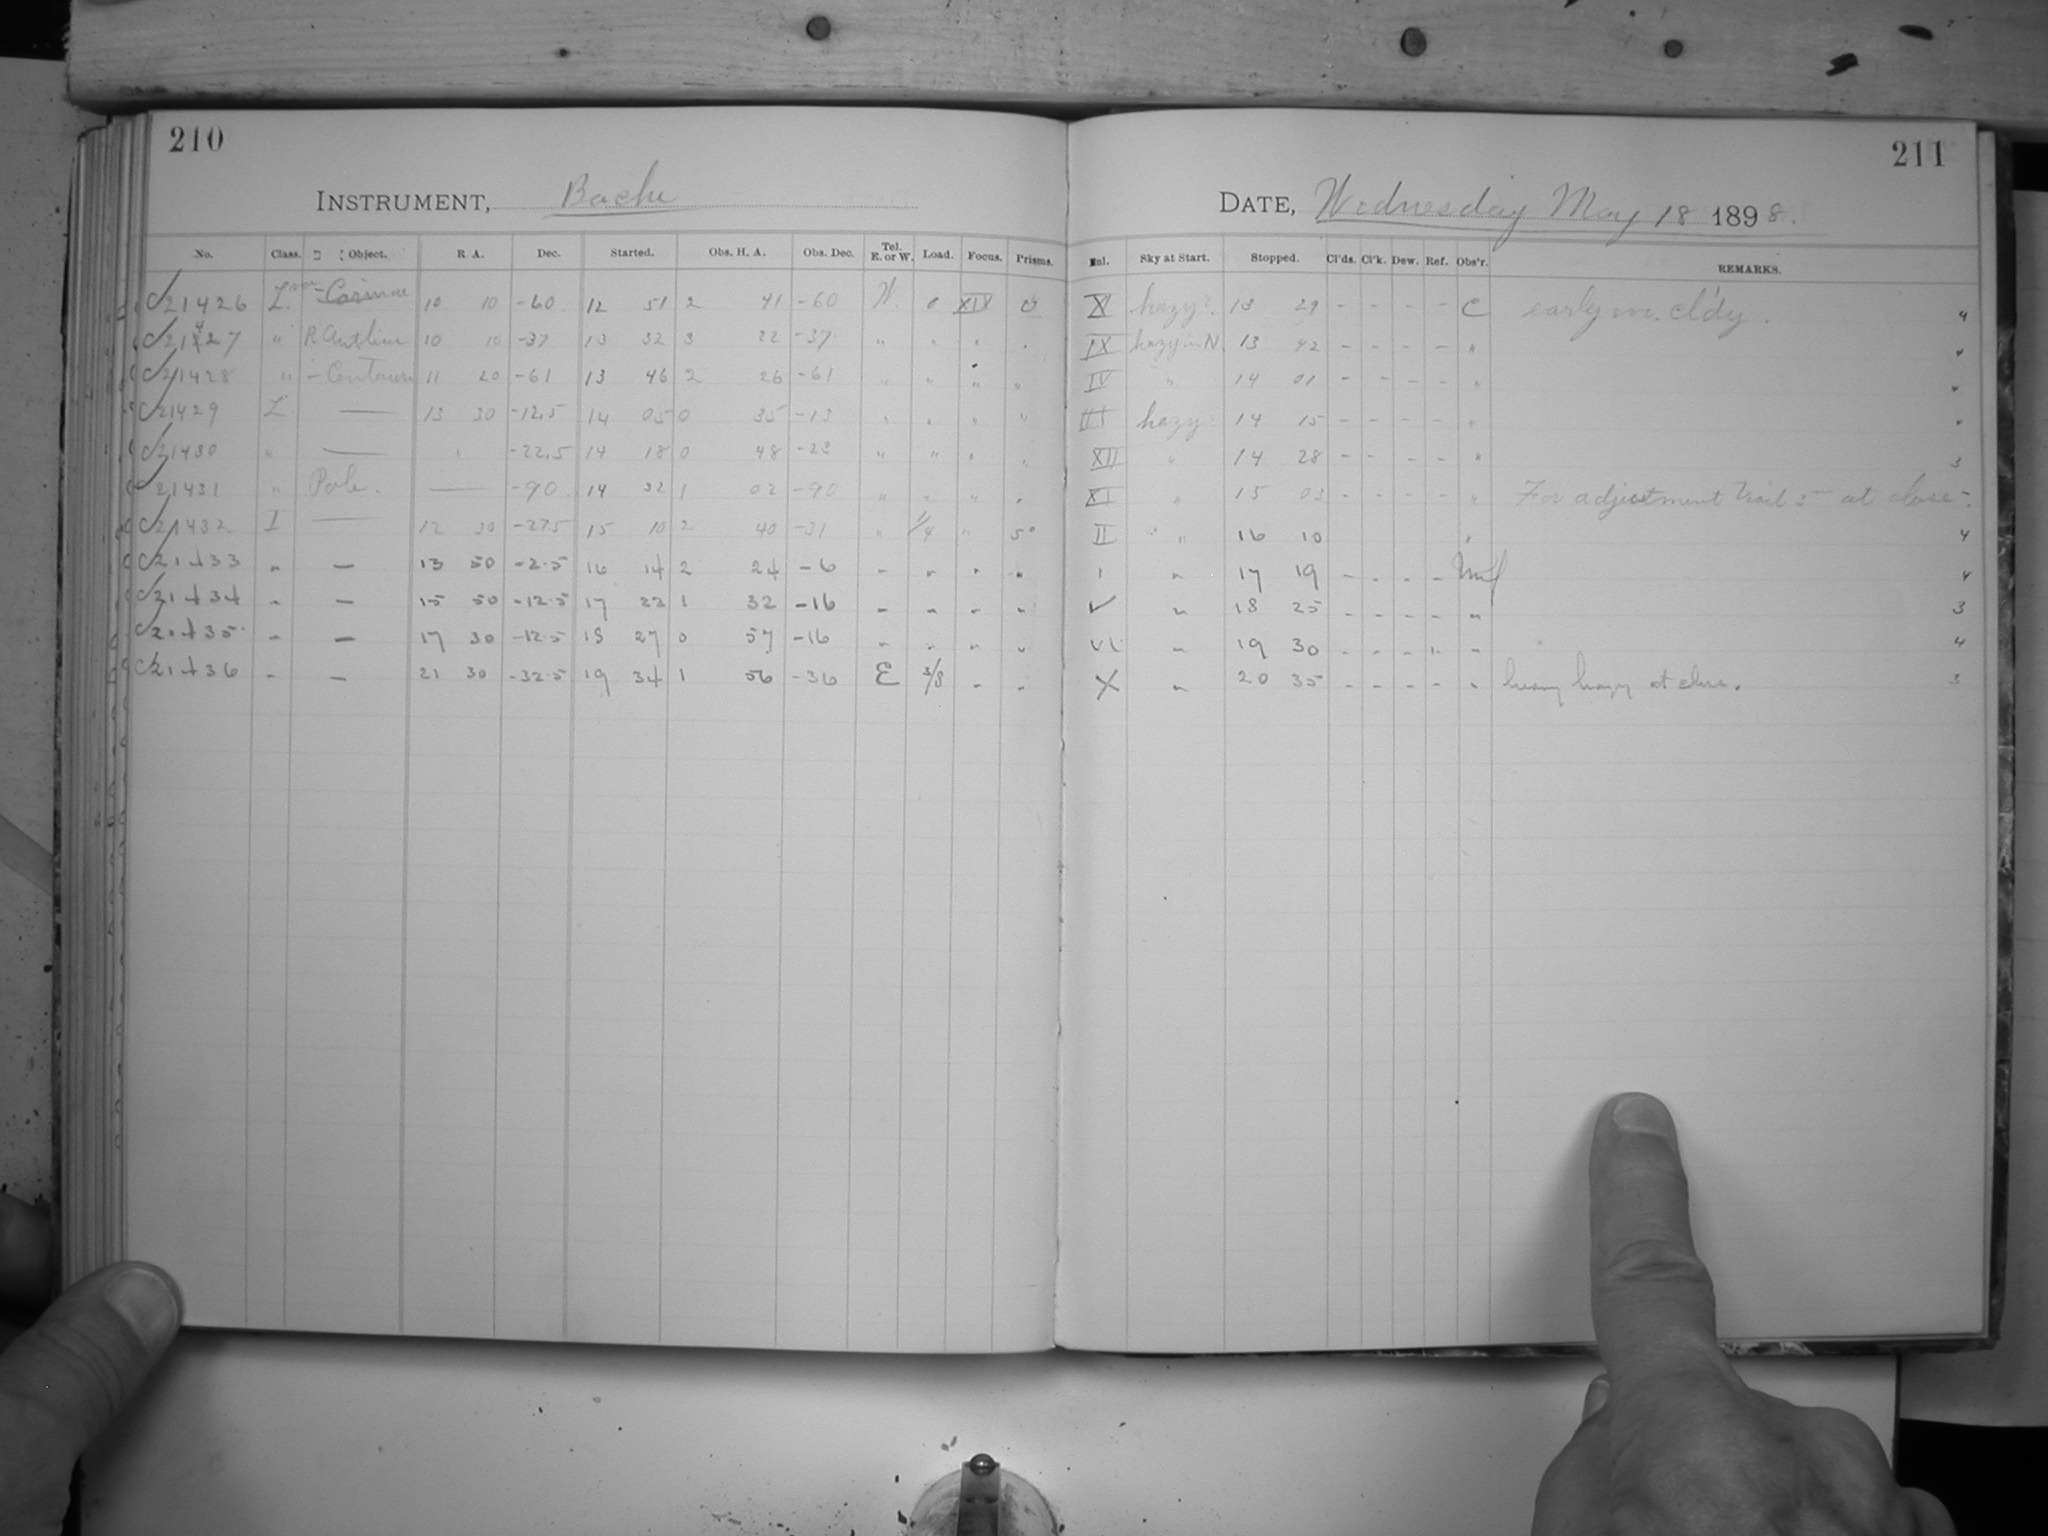 210
INSTRUMENT, Bache
No. Class. Object. R A. Dec. Started. Obs. H. A. Obs. Dec. Tel. E. or W. Load. Focus. Prisms.
C21426 L. var - Carinae 10 10 -60 12 51 2 41 -60 W. 0 XIX 0
C21427 " R Antliae 10 10 -37 13 32 3 22 -37 " " " "
C21428 " - Centauri 11 20 -61 13 46 2 26 -61 " " " "
C21429 L — 13 30 -12.5 14 05 0 35 -13 " " " "
C21430 " — " -22.5 14 18 0 48 -23 " " " "
C21431 " Pole. — -90 14 32 1 02 -90 " " " "
C21432 I — 12 30 -27.5 15 10 2 40 -31 " 1/4 " 5°
C21433 " — 13 50 -2.5 16 14 2 24 -6 " " " "
C21434 " — 15 50 -12.5 17 22 1 32 -16 " " " "
C21435 " — 17 30 -12.5 18 27 0 57 -16 " " " "
C21436 " — 21 30 -32.5 19 34 1 56 -36 E 3/8 " "
211
DATE, Wednesday May 18 1898.
Enl. Sky at Start. Stopped. Cl'ds. Cl'k. Dew. Ref. Obs'r. REMARKS.
X hazy 13 29 - - - - C early m. cl'dy. 4
IX hazy in N. 13 42 - - - - " 4
IV " 14 01 - - - - " "
III hazy 14 15 - - - - " "
XII " 14 28 - - - - " 3
XI " 15 03 - - - - " For adjustment trail 5 at close-
II " " 16 10 4
I " 17 19 - - - - 4
V " 18 25 - - - - " 3
VI " 19 30 - - - " 4
X " 20 35 - - - - " heavy hazy at close. 3